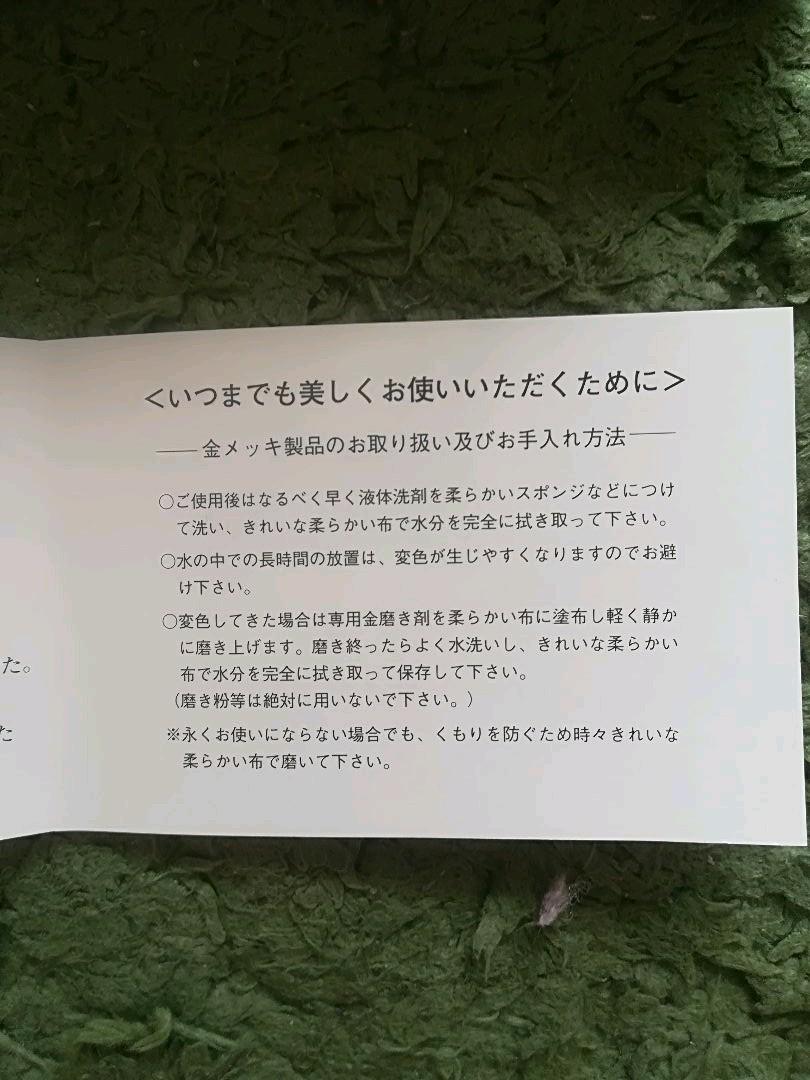 ＜いつまでも美しくお使いいただくために＞
――金メッキ製品のお取り扱い及びお手入れ方法――
○ご使用後はなるべく早く液体洗剤を柔らかいスポンジなどにつけ
て洗い、きれいな柔らかい布で水分を完全に拭き取って下さい。
○水の中での長時間の放置は、変色が生じやすくなりますのでお避
け下さい。
○変色してきた場合は専用金磨き剤を柔らかい布に塗布し軽く静か
に磨き上げます。磨き終ったらよく水洗いし、きれいな柔らかい
布で水分を完全に拭き取って保存して下さい。
（磨き粉等は絶対に用いないで下さい。）
※永くお使いにならない場合でも、くもりを防ぐため時々きれいな
柔らかい布で磨いて下さい。
た。
た